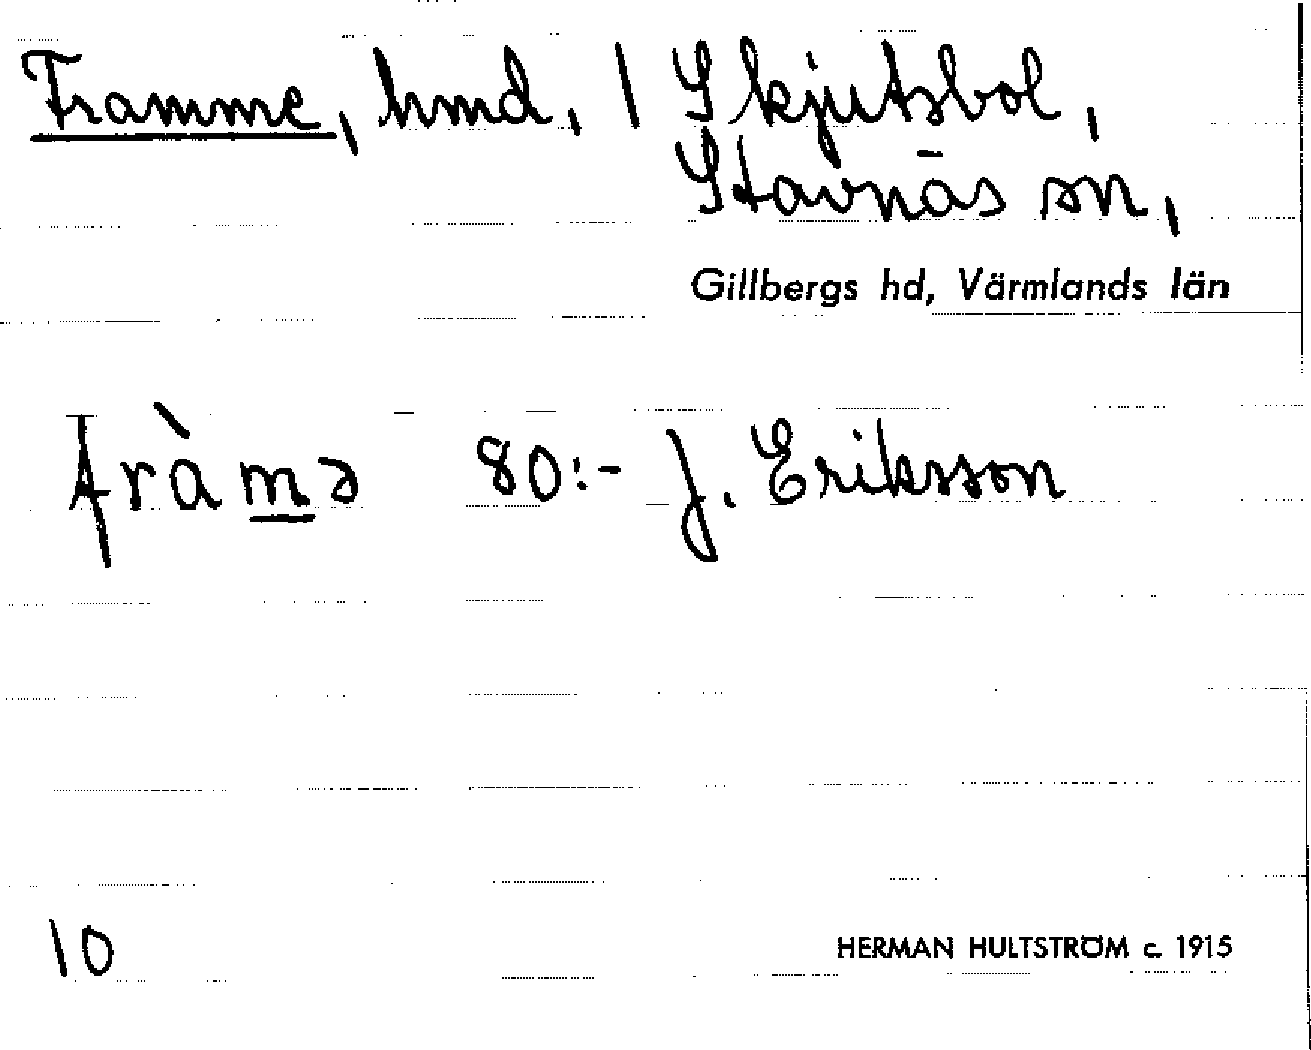 Framme, hmd, 1 Skjutsbol,
Stavnäs sn,
Gillbergs hd, Värmlands län
fràmə 80:- J. Eriksson
10
HERMAN HULTSTRÖM c. 1915